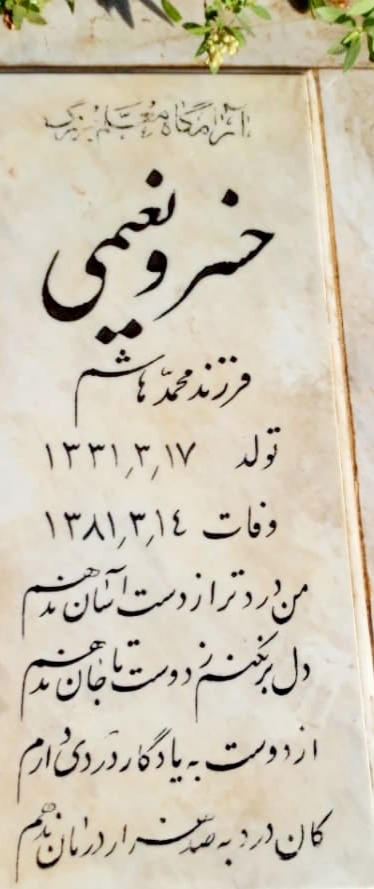 آرامگاه معلم بزرگ
خسرو نعیمی
فرزند محمد هاشم
تولد ۱۳۳۱٫۳٫۱۷
وفات ۱۳۸۱٫۳٫۱٤
من درد ترا ز دست آسان ندهم
دل بر نکنم ز دوست تا جان ندهم
از دوست به یادگار دردی دارم
کان درد به صد هزار درمان ندهم